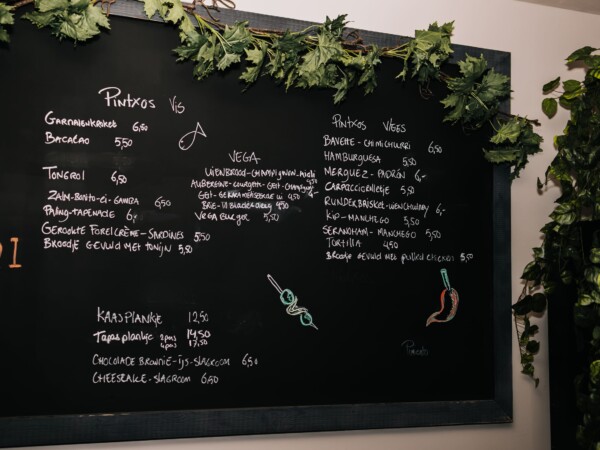 Pintxos Vis
Garnalenkroket 6,50
Bacalao 5,50
Tongrol 6,50
Zalm-Bonito-ei-Gamba 6,50
Paling-tapenade 6,-
Gerookte Forelcrème-Sardines 5,50
Broodje gevuld met tonijn 5,50
VEGA
Uienbrood-Champignon-Aioli 4,50
Aubergine-Courgette-Geit-Champignon
Geit-Gekarameliseerde ui 4,50
Brie-ui 4,50
Vega Burger 5,50
Pintxos Vlees
Bavette-Chimichurri 6,50
Hamburguesa 5,50
Merguez-Padrón 6,-
Carpacciolletje 5,50
Runderbrisket-Wenchumay 6,-
Kip-Manchego 5,50
Serranoham-Manchego 5,50
Tortilla 4,50
Broodje gevuld met pulled chicken 5,50
Kaasplankje 12,50
Tapasplankje 2 pers 14,50
4 pers 17,50
Chocolade Brownie-ijs-slagroom 6,50
Cheesecake-slagroom 6,50
DI